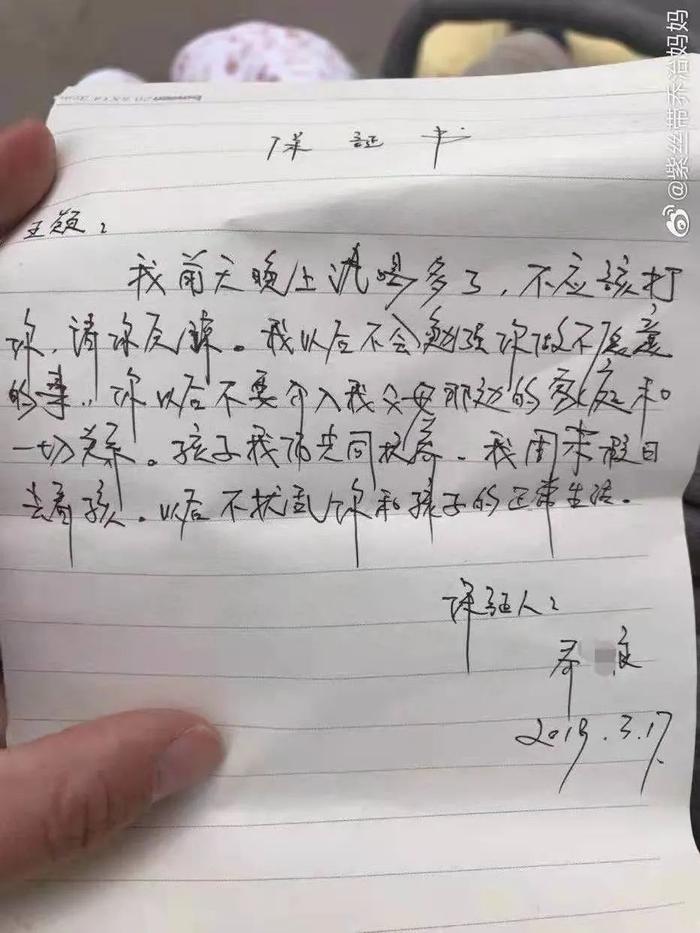 保证书
王颖：
我前天晚上酒喝多了，不应该打
你，请你反谅。我以后不会勉强你做不愿意
的事，你以后不要介入我父母那边的家庭和
一切关系。孩子我们共同抚养。我周末假日
去看孩。以后不扰乱你和孩子的正常生活。
保证人：
2019.3.17
@紫丝带乔治妈妈